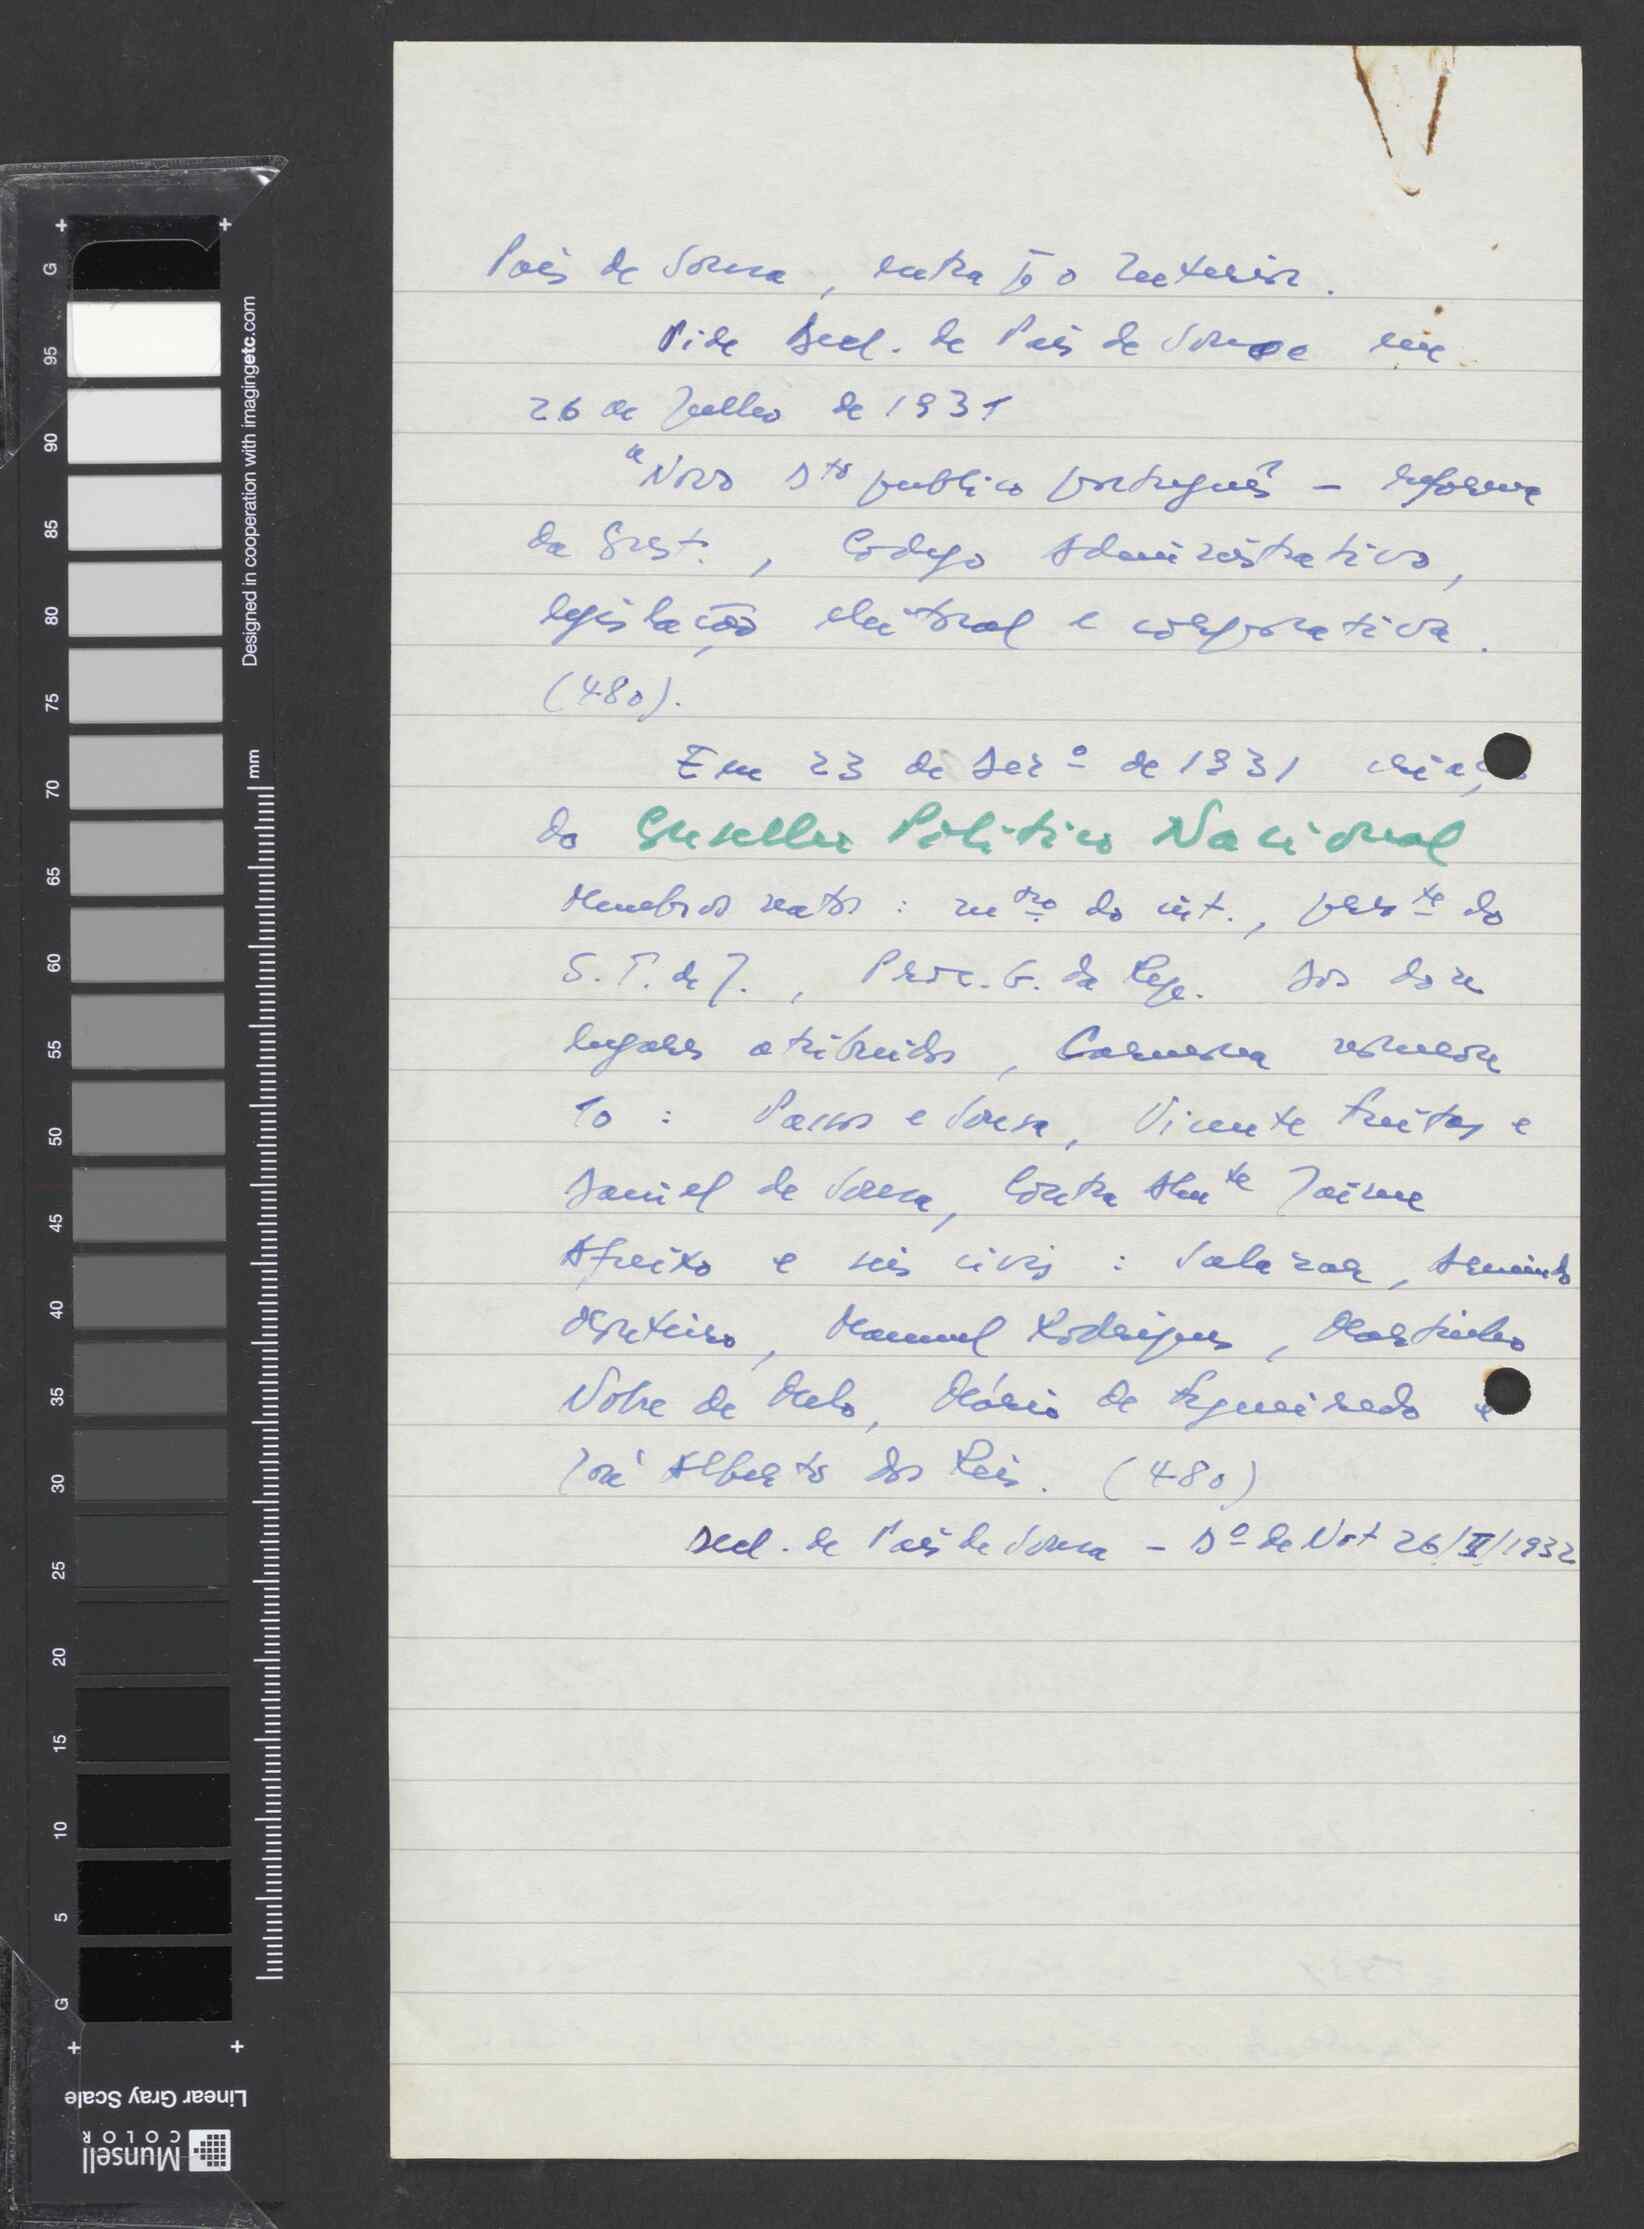 Pais de Sousa, entra pª o Interior.
Vide Decl. de Pais de Sousa em
26 de Julho de 1931
"Novo Dto publico português - reforma
da Const., Codigo Administrativo,
legislação eleitoral e corporativa.
(480).
Em 23 de Dezº de 1931 criação
do Conselho Politico Nacional
Membros natos: mro do int., preste do
S.T. de J., Proc. G. da Rep. dos doze
lugares atribuidos, Carmona nomeou
10: Passos e Sousa, Vicente Freitas e
Daniel de Sousa, Contra Almte Jaime
Afreixo e seis civis: Salazar, Armindo
Monteiro, Manuel Rodrigues, Martinho
Nobre de Melo, Mário de Figueiredo e
José Alberto dos Reis. (480)
Decl. de Pais de Sousa - Dº de Not 26/II/1932
G 95 90 85 80 75 70 65 60 55 50 45 40 35 30 25 20 15 10 5 G
mm
Designed in cooperation with imagingetc.com
Linear Gray Scale
Munsell
COLOR